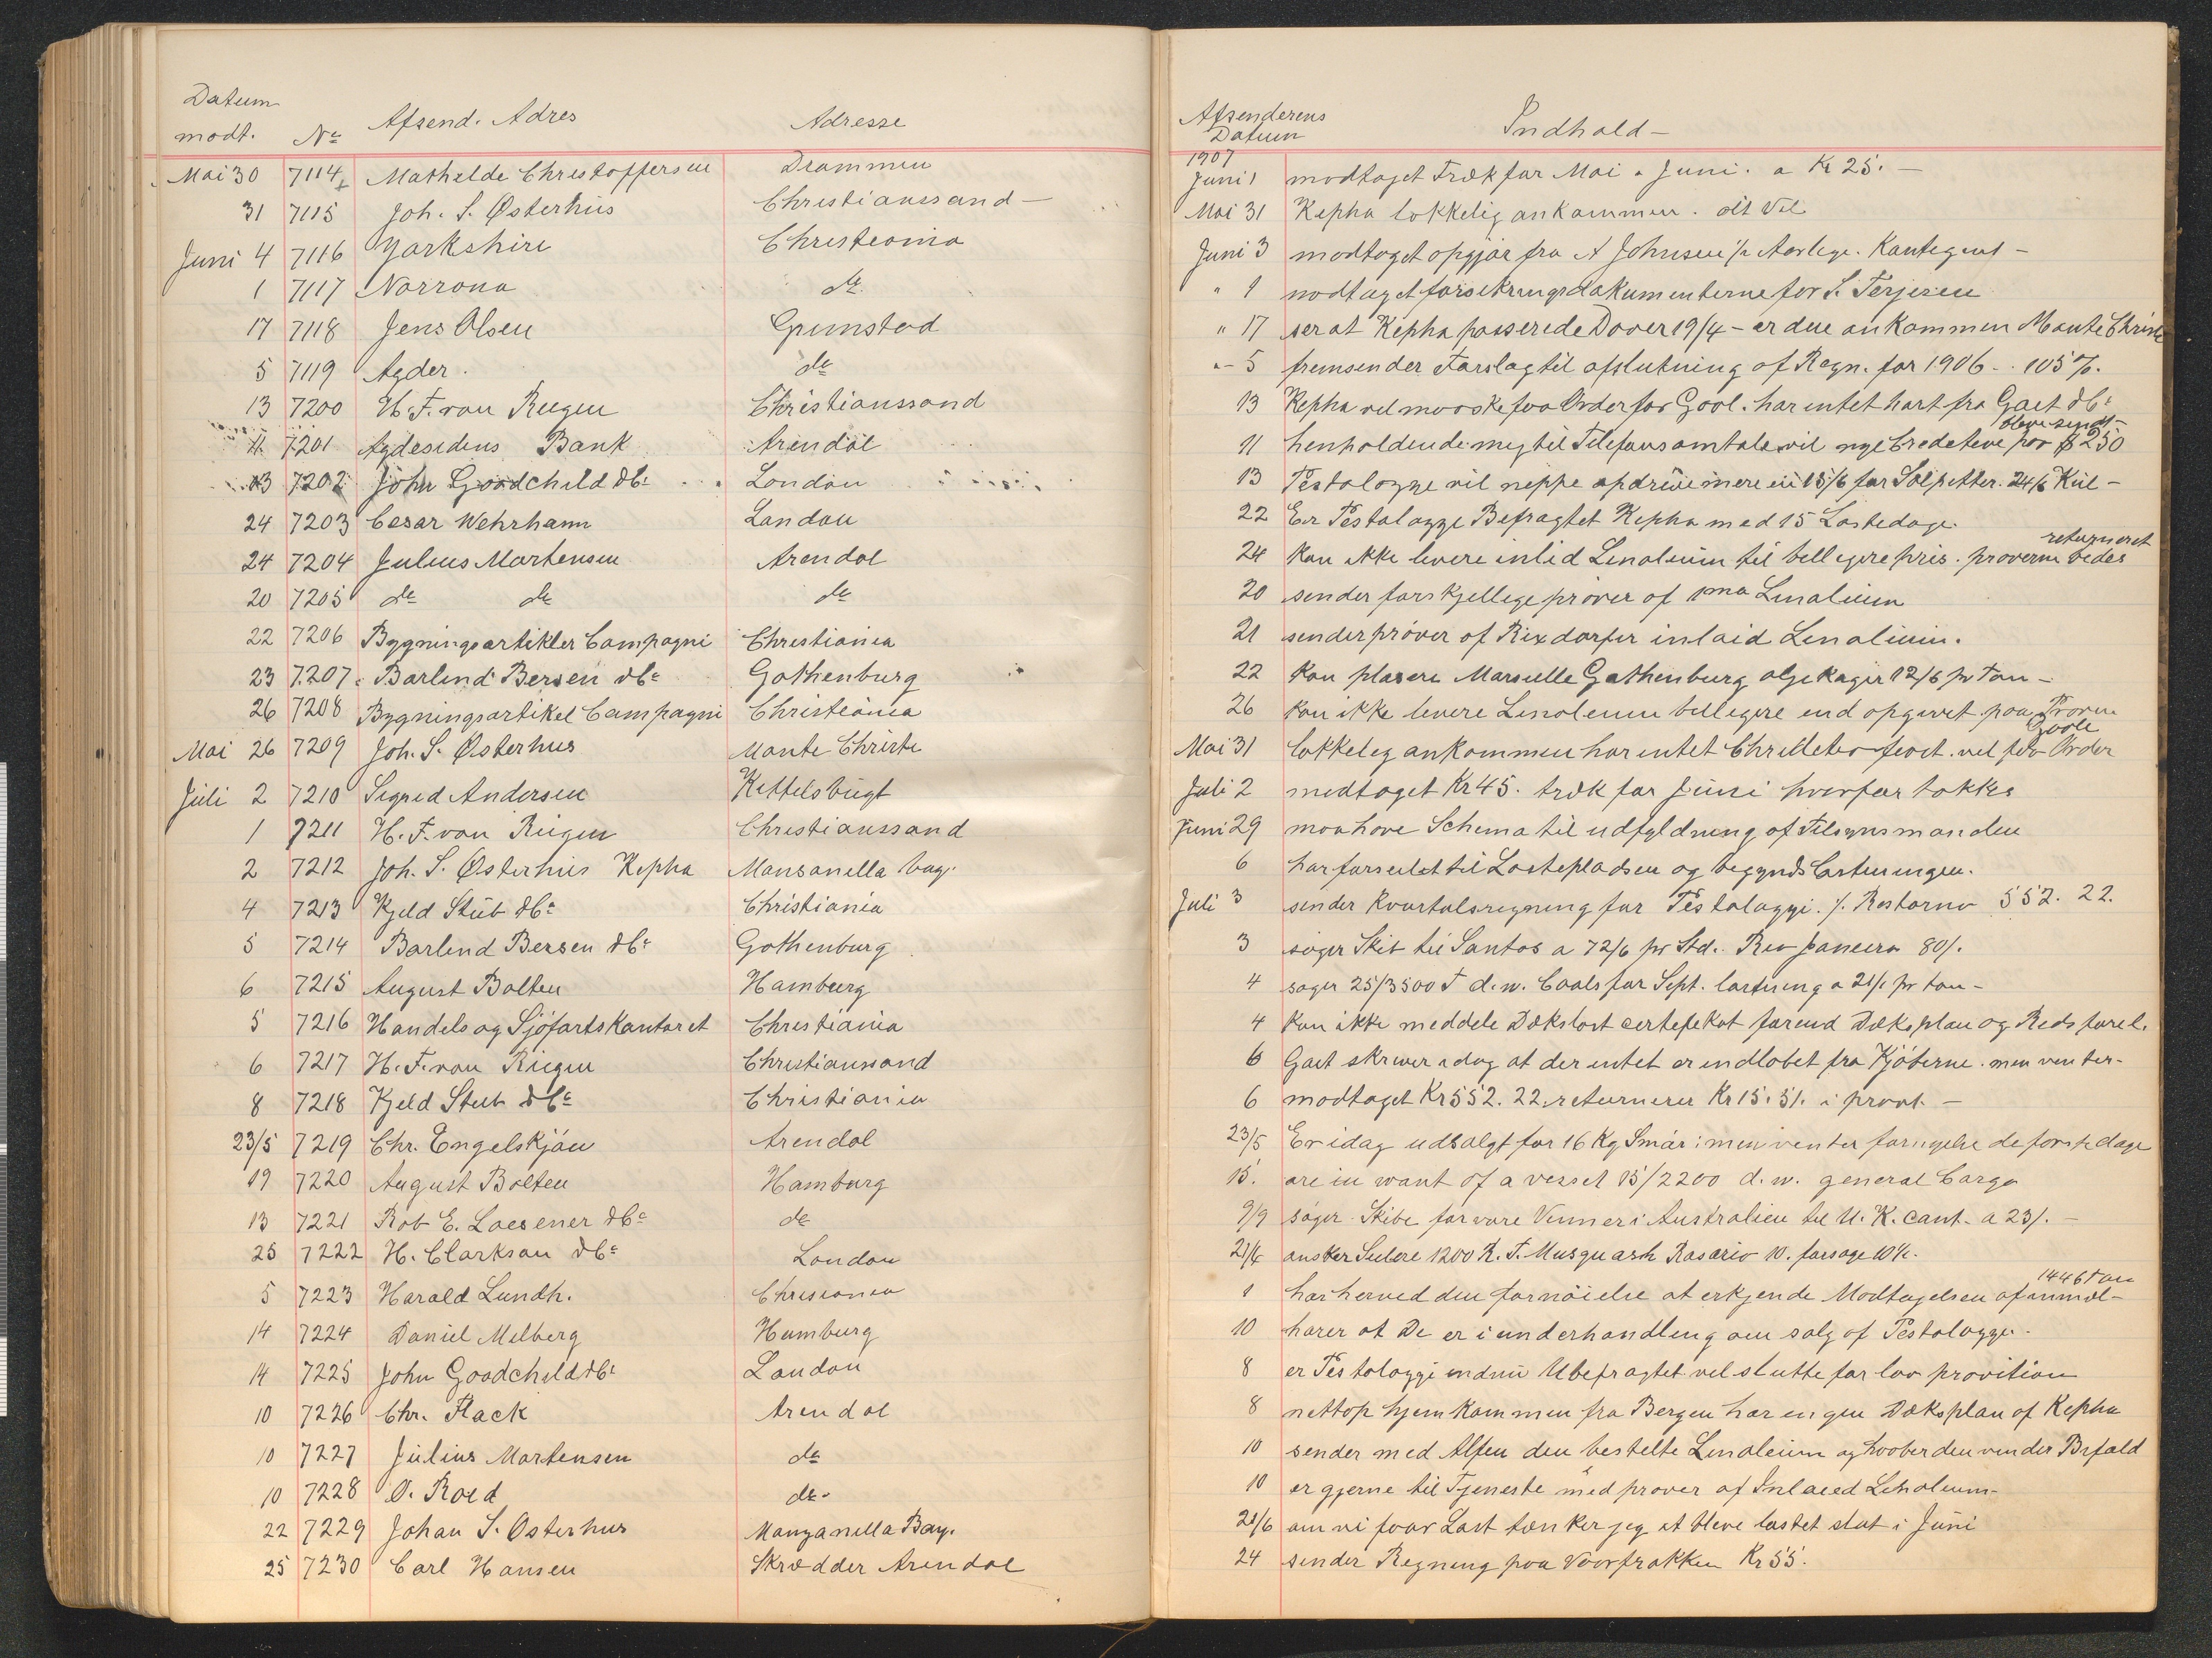 Datum
modt. No Afsend. Adres Adresse
Mai 30 7114 Mathilde Christoffersen Drammen
31 7115 Joh. S. Østerhus Christianssand
Juni 4 7116 Yorkshire Christiania
1 7117 Norrona do
17 7118 Jens Olsen Grimstad
5 7119 Agder. do
13 7200 H. F. van Riegen Christianssand
11 7201 Agdesidens Bank Arendal
13 7202 John Goodchild &Co London
24 7203 Cesar Wehrhann London
24 7204 Julius Martensen Arendal
20 7205 do do do
22 7206 Bygningsartikler Compagni Christiania
23 7207 Barlind Bersen &Co Gothenburg
26 7208 Bygningsartikel Compagni Christiania
Mai 26 7209 Joh. S. Østerhus Monte Christi
Juli 2 7210 Sigrid Andersen Kittelsbugt
1 7211 H. F. van Riegen Christianssand
2 7212 Joh. S. Østerhus Kepha Mansanilla bay.
4 7213 Kjeld Stub &Co Christiania
5 7214 Barlind Bersen &Co Gothenburg
6 7215 August Bolten Hamburg
5 7216 Handels og Sjöfartskontoret Christiania
6 7217 H. F. van Riegen Christianssand
8 7218 Kjeld Stub &Co Christiania
23/5 7219 Chr. Engelskjön Arendal
19 7220 August Bolten Hamburg
13 7221 Rob E. Loesener &Co do
25 7222 H. Clarkson &Co London
5 7223 Harald Lundh. Chrisiania
14 7224 Daniel Melberg Hamburg
14 7225 John Goodchild &Co London
10 7226 Chr. Flack Arendal
10 7227 Julius Martensen do
10 7228 O. Roed do
22 7229 Johan S. Osterhus Manzanilla Bay.
25 7230 Carl Hansen Skrædder Arendal
Afsenderens
Datum Indhold -
1907
Juni 1 modtaget Træk for Mai & Juni. a Kr 25. -
Mai 31 Kepha lykkelig ankommen. alt vel
Juni 3 modtaget opgjör fra A Johnsen
" 1 modtaget forsikringsdokumenterne for S. Terjesen
" 17 ser at Kepha passerede Dover 19/4 - er den ankommen Monte Christi
" - 5 fremsender Forslag til afslutning af Regn. for 1906 - 105 %.
13 Kepha vil maaske faa Order for Gool. har intet hørt fra Gaet &Co
11 henholdende mig til Telefonsamtale vil nye Creditive paa $ 250 blive sendt
13 Pestalozzi vil neppe opdrive mere en 15/6 for Salpetter. 24/6 Kul -
22 Er Pestalozzi Befragtet Kepha med 15 Lastedage.
24 Kan ikke levere inlid Linoleum til billigere pris. prøverne bedes returneret
20 sender forskjellige prøver af 1ma Linolium
21 sender prøver af Rixdorfer inlaid Linolium.
22 Kan plasere Marseille Gothenburg oljekager 12/6 pr Ton -
26 Kan ikke levere Linoleum billigere end opgivet paa Prøven
Mai 31 lykkelig ankommen har intet til fragt. vil faa Order Goole
Juli 2 modtaget Kr 45. træk for Juni hvorfor takkes
Juni 29 maa have Schema til udfyldning af Tilsynsmanden
6 har forseilet til Lastepladsen og begyndt Lastningen.
Juli 3 sender Kvartalsregning for Pestalozzi. 552. 22.
3 søger Skib til Santos a 72/6 pr Std. Rio Janeiro 80/.
4 søger 25/3500 T d.w. Coals for Sept. lastning a 21/. pr ton -
4 Kan ikke meddele Dækslast certifikat forend Dæksplan og
6 Gaet skriver idag at der intet er indløbet fra Kjöberne. men venter -
6 modtaget Kr 552. 22. returnerer Kr 15. 51. i provt. -
23/5 Er idag udsolgt for 16 Kg Smör: men venter fornyelse de første dage
15. are in want of a vessel 15/2200 d.w. general Cargo
9/9 søger Skibe for vore Venner i Australien til U.K. cont. a 23/. -
21/6 ønsker Seilere 1200 R. T. Musquash Rosario
1 har herved den fornöielse at erkjende Modtagelsen af 1446 Ton
10 hører at De er i underhandling om salg af Pestalozzi.
8 er Pestalozzi endnu Ubefragtet vil slutte for lav provition
8 nettop hjemkommen fra Bergen har ingen Dæksplan af Kepha
10 sender med Alfen den bestelte Linoleum og haaber den vinder Bifald
10 er gjerne til Tjeneste med prøver af Inlaied Linoleum -
20/6 om vi faar Last tænker jeg at blive lastet slut i Juni
24 sender Regning paa Vaarfrakken Kr 55.